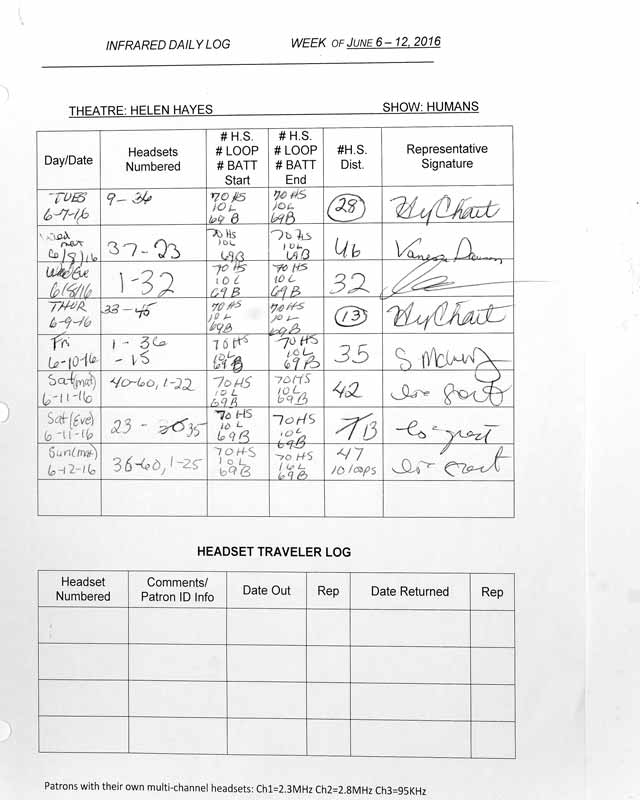 INFRARED DAILY LOG WEEK OF JUNE 6 – 12, 2016
THEATRE: HELEN HAYES SHOW: HUMANS
Day/Date
Headsets
Numbered
# H.S.
# LOOP
# BATT
Start
# H.S.
# LOOP
# BATT
End
#H.S.
Dist.
Representative
Signature
TUES
6-7-16
9-36
70 HS
10 L
69 B
70 HS
10 L
69 B
28
Wed
mat
6/8/16
37-23
70 HS
10L
69B
70 Hs
10L
69B
46
Wed Eve
6/8/16
1-32
70 HS
10 L
69B
70 HS
10L
69B
32
THUR
6-9-16
33-45
70 HS
10L
69B
70 HS
10L
69B
13
Fri
6-10-16
1-36
-15
70 HS
10 L
69B
70 HS
10L
69 B
35
Sat(mat)
6-11-16
40-60, 1-22
70 HS
10L
69B
70 HS
10L
69B
42
Sat(Eve)
6-11-16
23 - 35
70 HS
10L
69B
70 HS
10L
69B
13
Sun(mat)
6-12-16
36-60, 1-25
70HS
10L
69B
70 HS
69B
47
10 loops
HEADSET TRAVELER LOG
Headset
Numbered
Comments/
Patron ID Info
Date Out
Rep
Date Returned
Rep
Patrons with their own multi-channel headsets: Ch1=2.3MHz Ch2=2.8MHz Ch3=95KHz